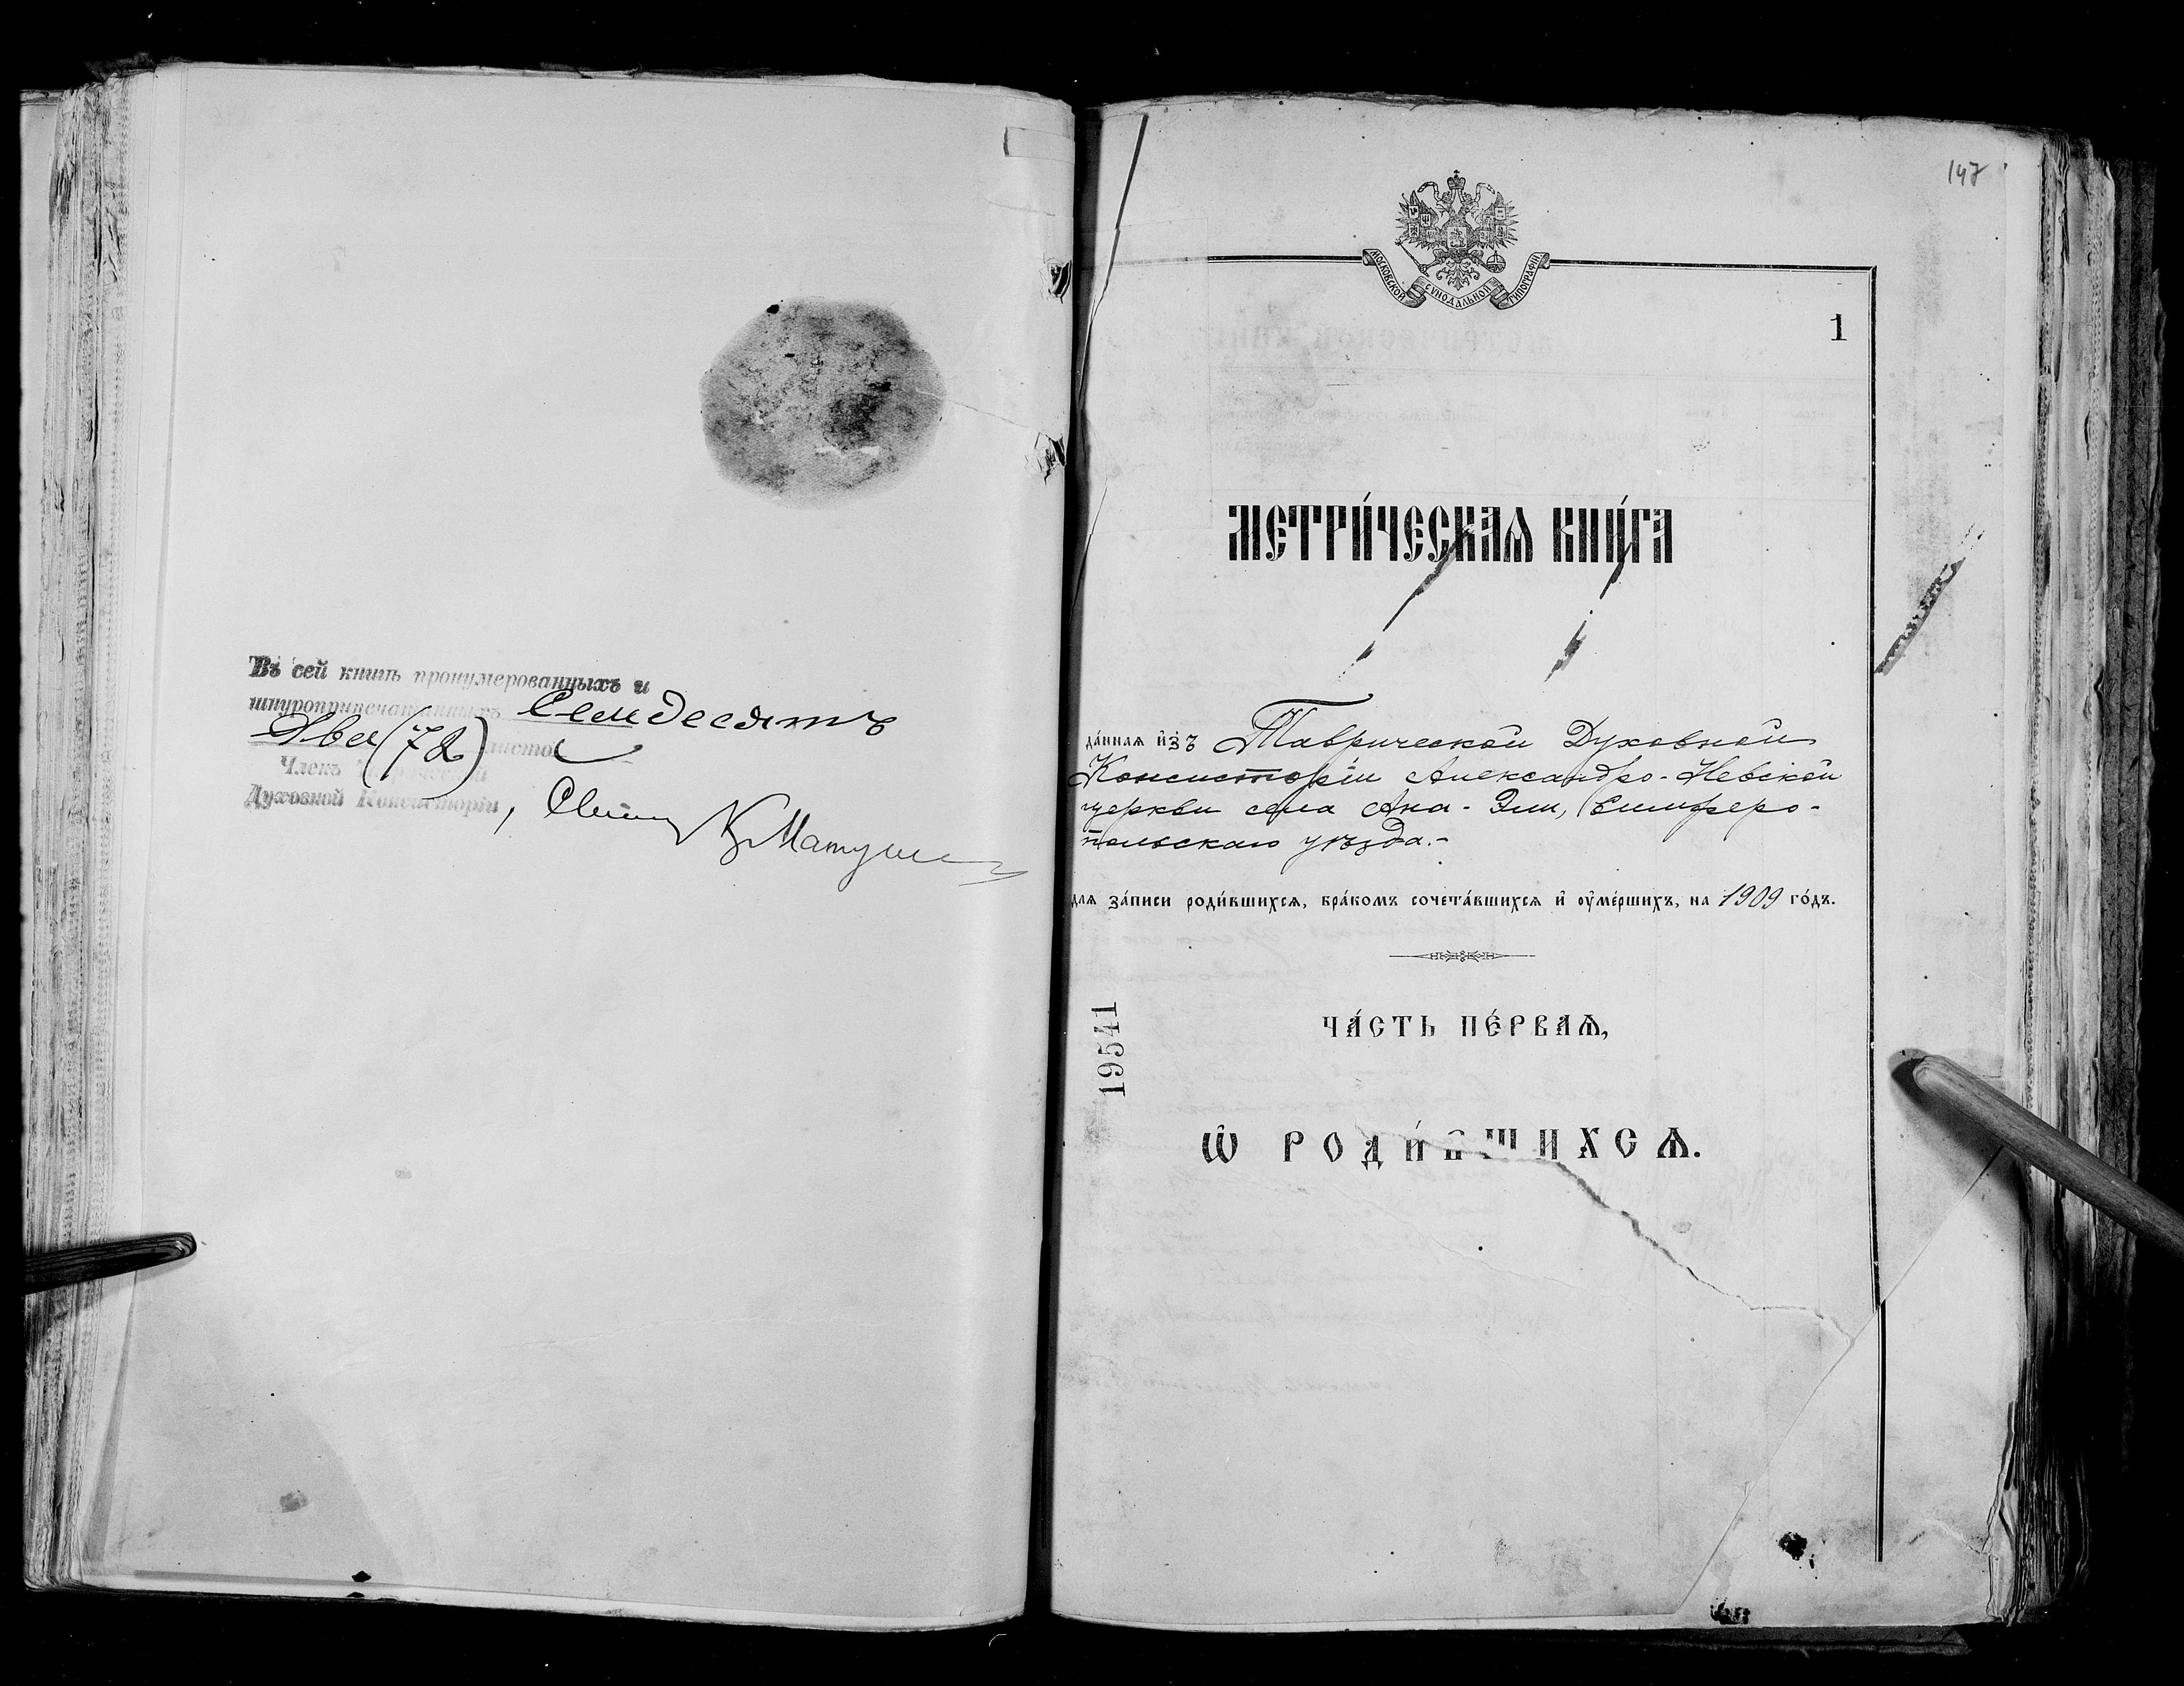 Въ сей книгѣ пронумерованныхъ и
шнуроприпечатанныхъ Семдесятъ
Два (72) листо
Членъ
Духовной Консисторіи, Свящ К Матуше
147
МОСКОВСКОЙ СѴНОДАЛЬНОЙ ТИПОГРАФІИ
1
МЕТРИ́ЧЕСКАѦ КНИ́ГА
да́ннаѧ и҆зъ Таврической Духовной
Консисторіи Александро-Невской
церкви села Ака-Эли, Симферо-
польскаго уѣзда.-
длѧ за́писи роди́вшихсѧ, бра́комъ сочета́вшихсѧ и҆ ᲂу҆ме́ршихъ, на 1909 го́дъ.
19541
ЧА́СТЬ ПЕ́РВАѦ,
Ѽ РОДИ́ВШИХСѦ.